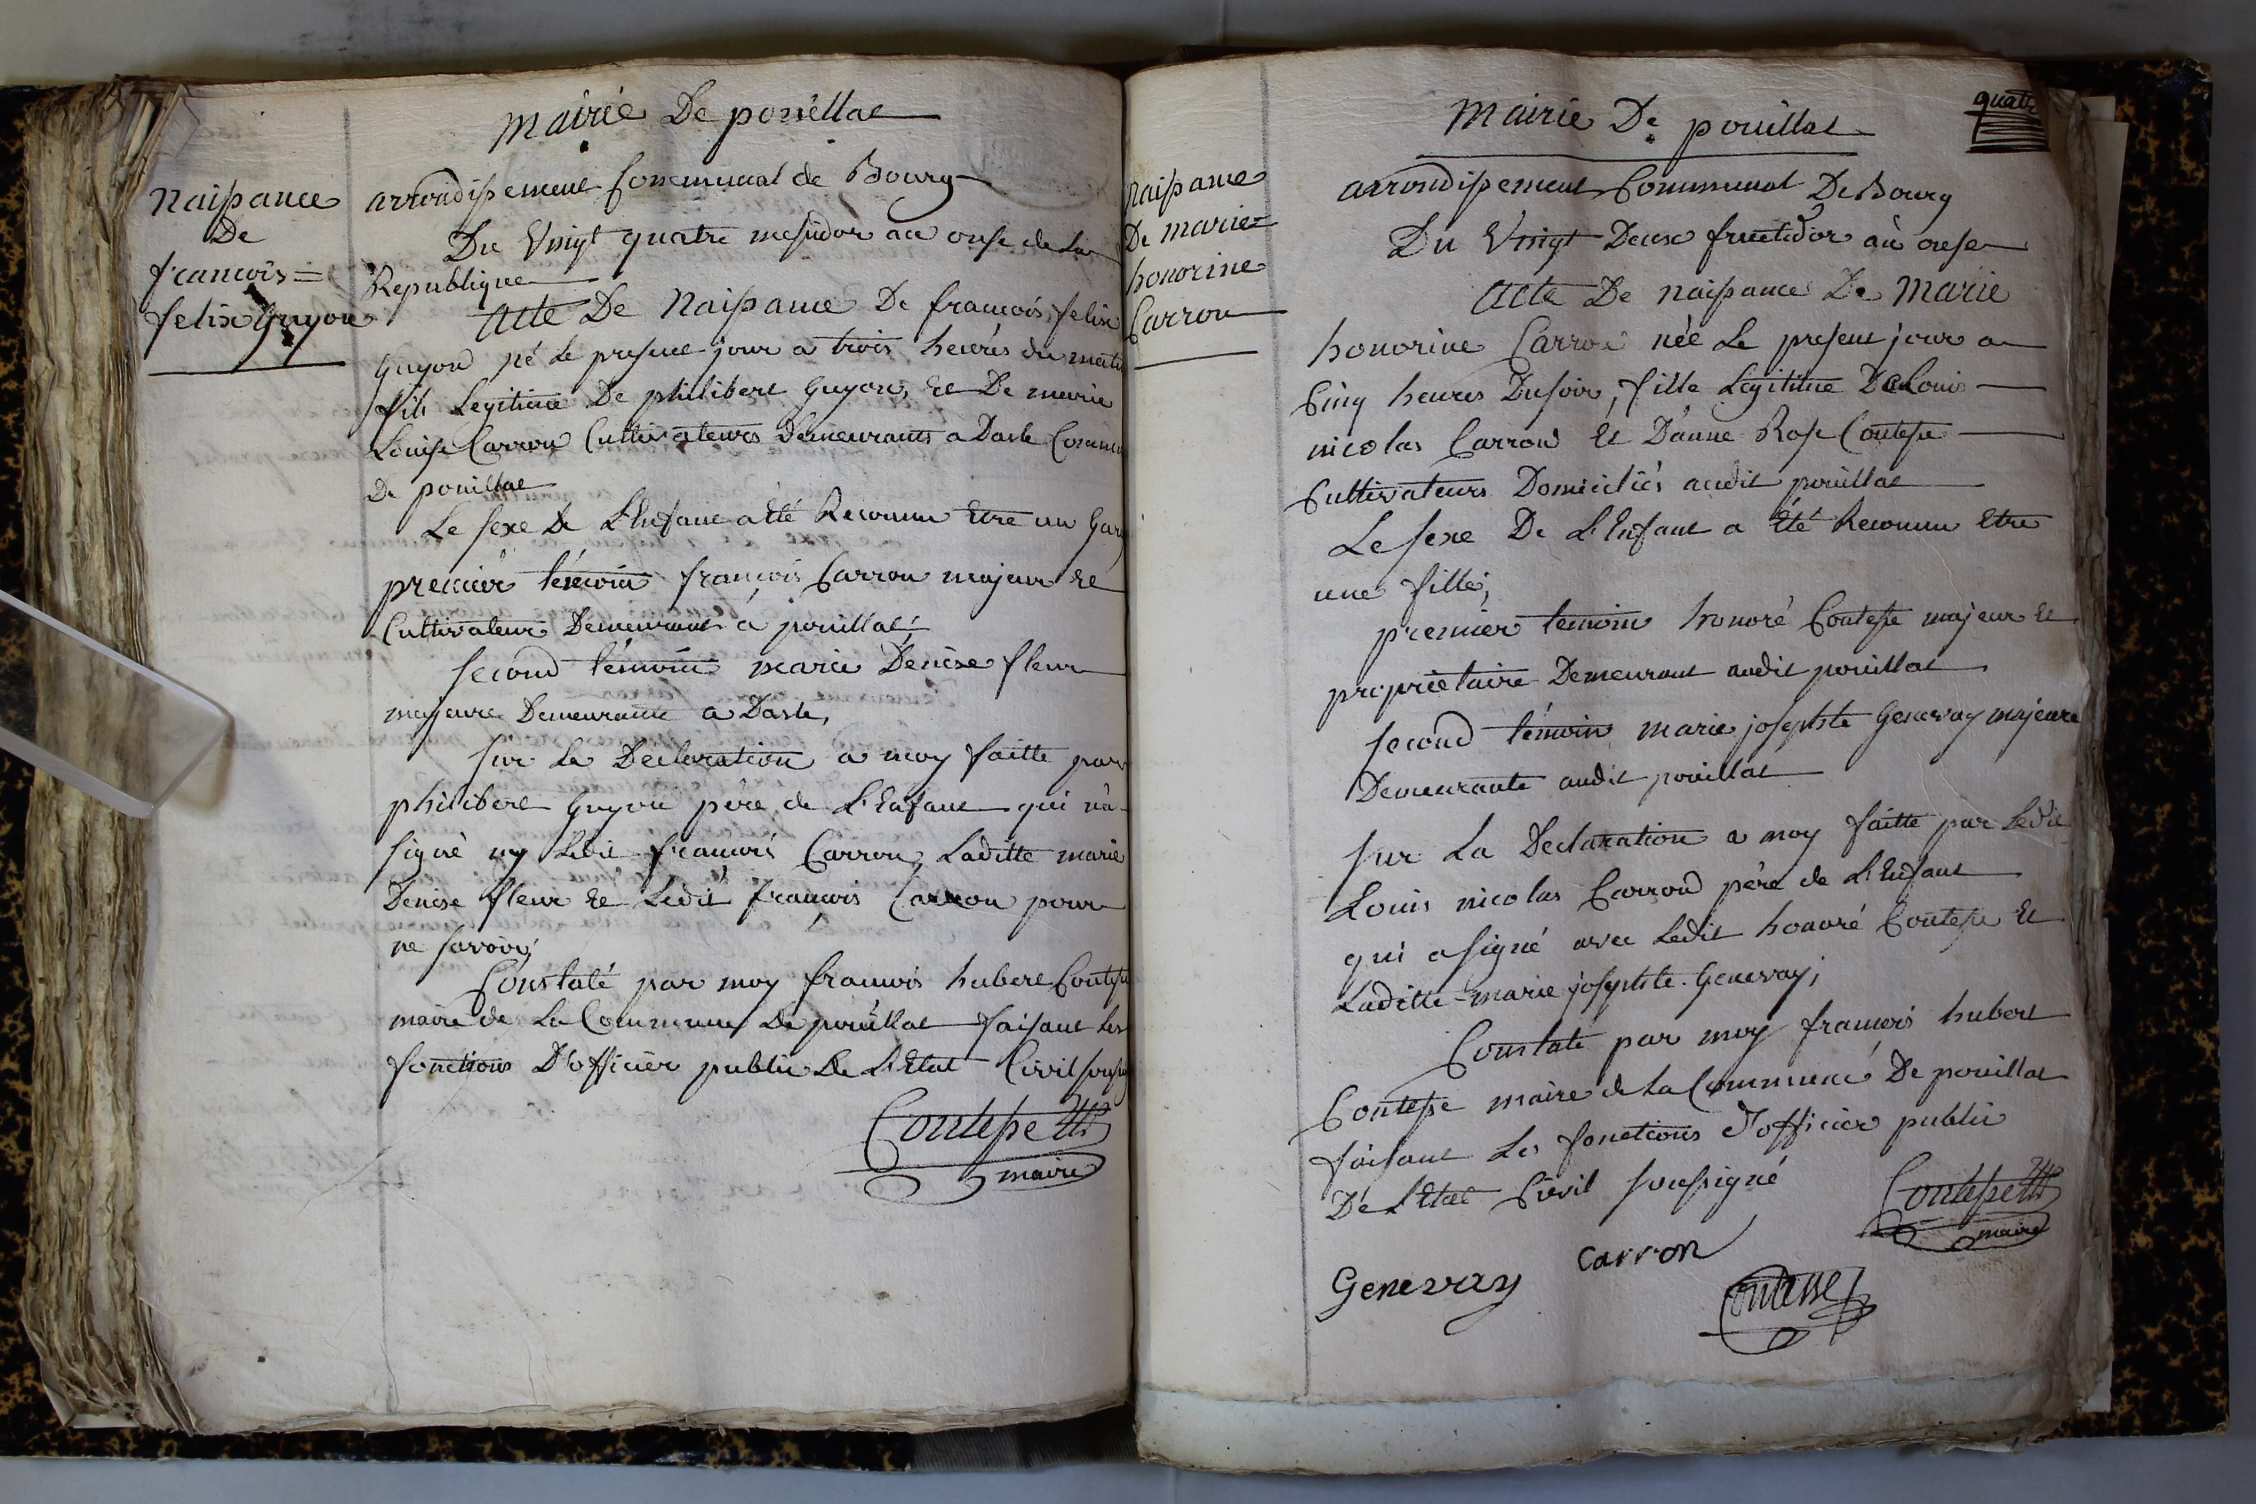 Mairie De pouillat
Naissance
De
francois =
felix Guyon
arrondissement Communal de Bourg
Du Vingt quatre messidor an onse de La
Republique
Acte De Naissance De francois felix
Guyon né Le present jour a trois heures du matin
fils Legitime De philibert Guyon, Et De marie
Louise Carron Cultivateurs Demeurants a Dasle Commune
De pouillat
Le sexe De L'Enfant a Eté Reconnu Etre un Garç
premier témoin françois Carron majeur Et
Cultivateur Demeurant a pouillat
second témoin marie Denise fleur
majeure Demeurante a Dasle,
sur La Declaration a moy faitte par
philibert Guyon père de L'Enfant qui n'a
signé ny Ledit francois Carron, Laditte marie
Denise fleur Et Ledit francois Carron pour
ne savoir,
Constaté par moy francois hubert Contesse
maire de La Commune De pouillat faisant Les
fonctions D'officier public De L'Etat Civil sous
Contesse
maire
Mairie De pouillat
quatre
Naissance
De marie =
honorine
Carron
arrondissement Communal De Bourg
Du Vingt Deux fructidor an onse
Acte De naissance De Marie
honorine Carron née Le present jour a
Cinq heures Du soir, fille Legitime De Louis
nicolas Carron Et D'anne Rose Contesse
Cultivateurs Domiciliés audit pouillat
Le sexe De L'Enfant a Eté Reconnu Etre
une fille,
premier temoin honoré Contesse majeur Et
propriétaire Demeurant audit pouillat
second témoin marie josephte Genevay majeure
Demeurante audit pouillat
sur La Declaration a moy faitte par Ledit
Louis nicolas Carron père de L'Enfant
qui a signé avec Ledit honoré Contesse Et
Laditte marie josephte Genevay,
Constaté par moy francois hubert
Contesse maire de La Commune De pouillat
faisant Les fonctions d'officier public
De L'Etat Civil soussigné
Contesse
maire
Genevay
Carron
Contesse